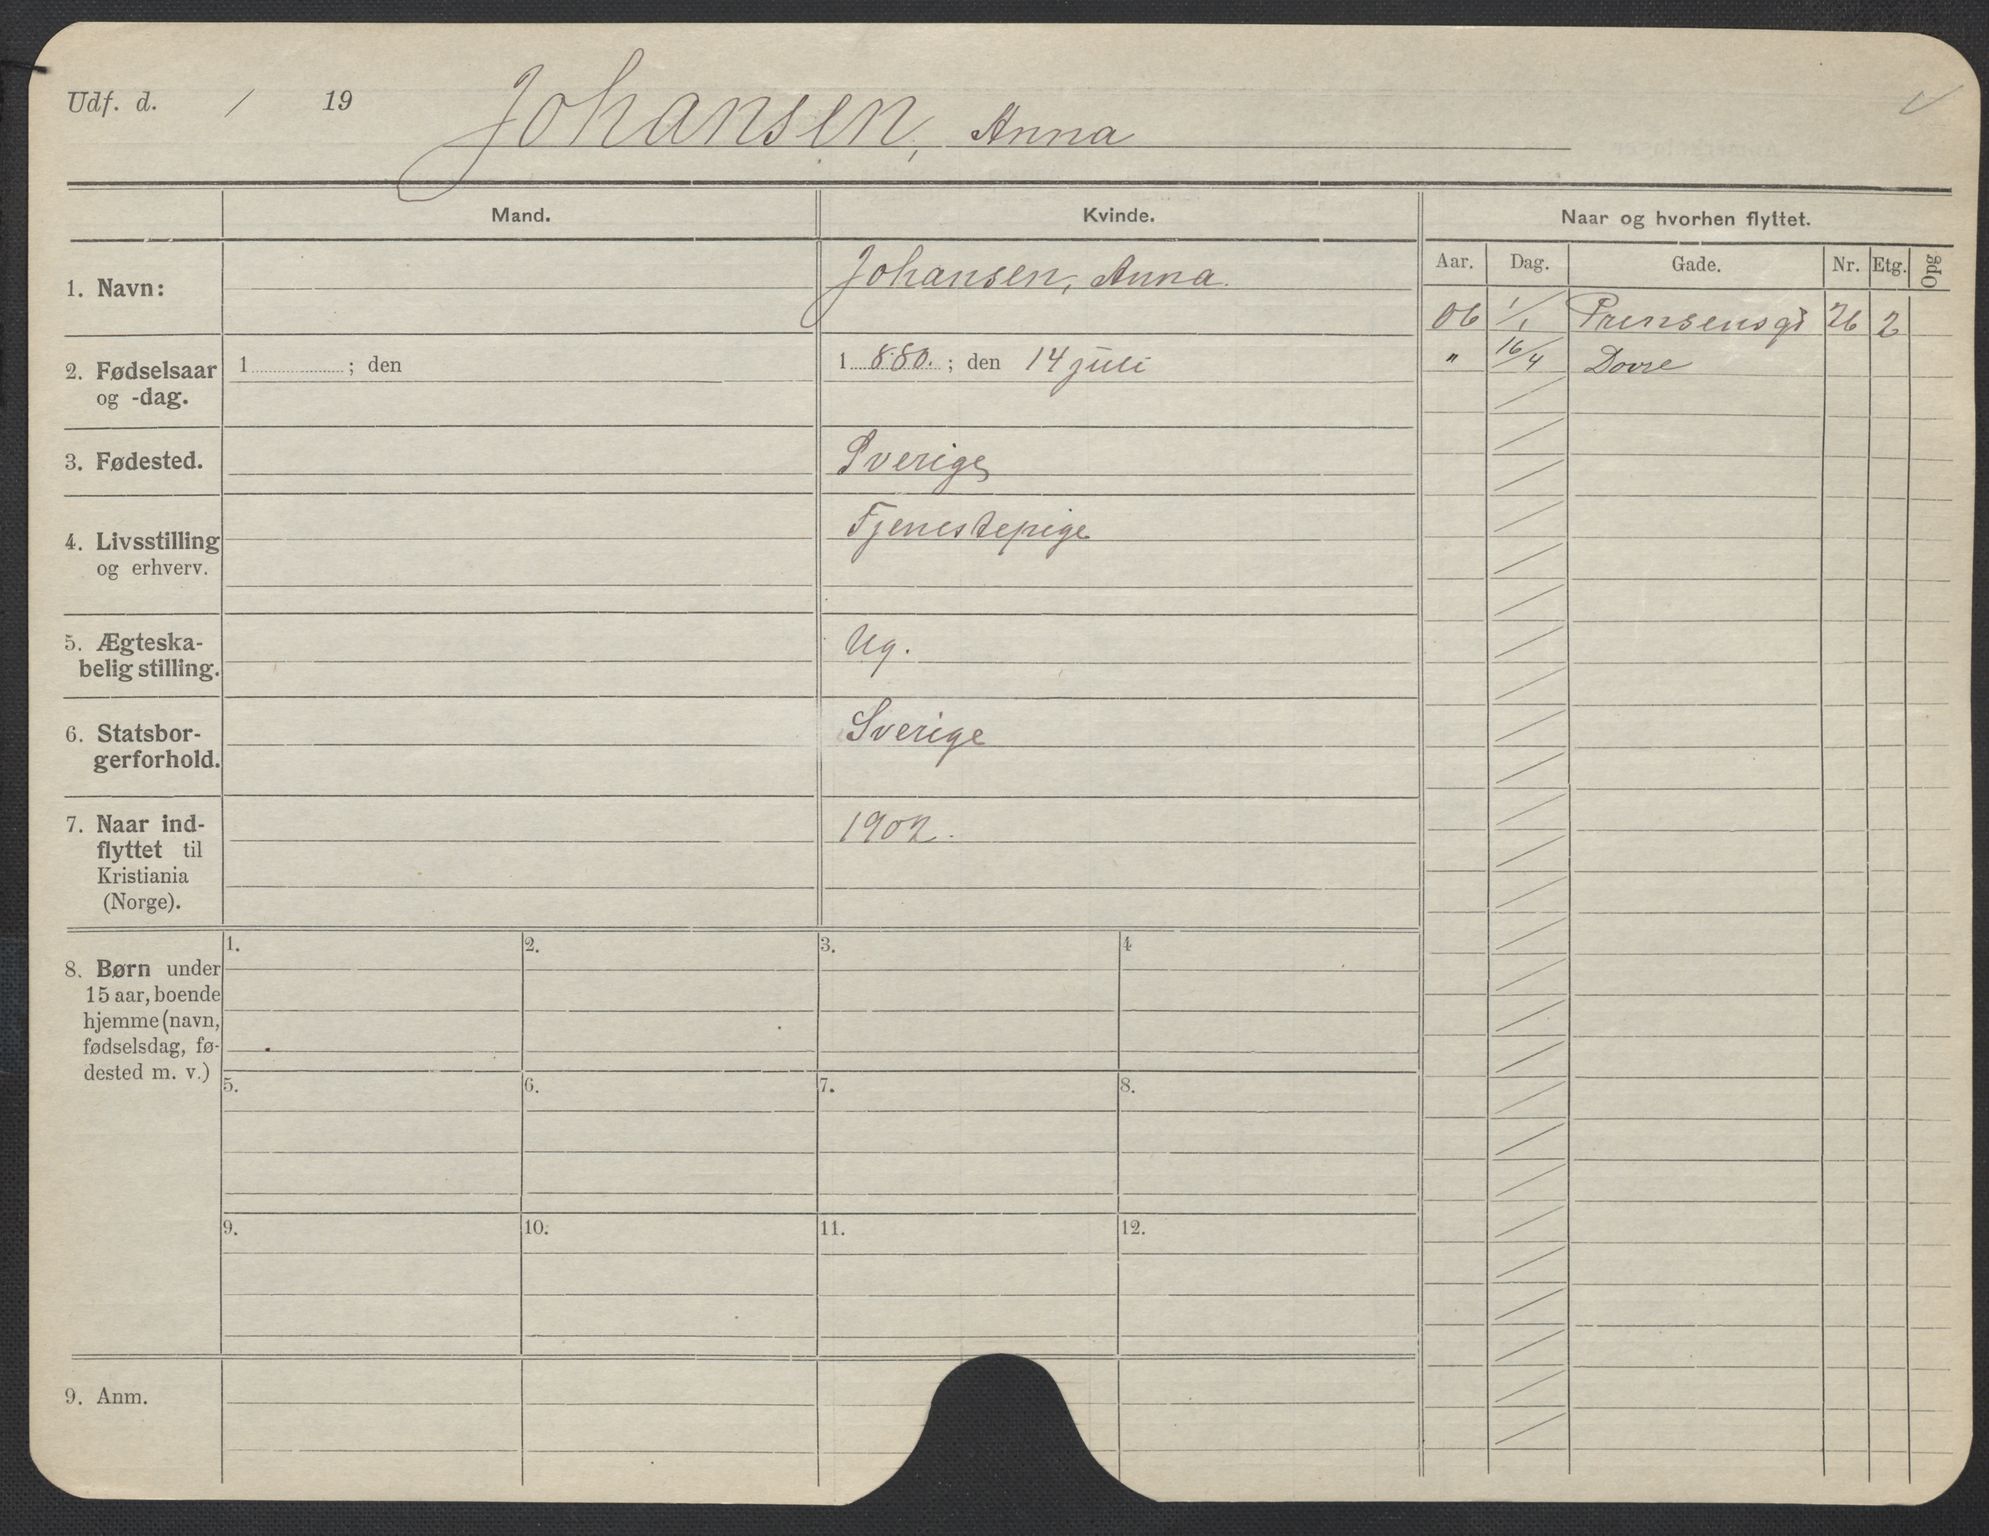 Udf. d. / 19
Johansen, Anna
Mand.
Kvinde.
Naar og hvorhen flyttet.
Aar. Dag. Gade. Nr. Etg. Opg
1. Navn:
Johansen, Anna.
06 1/1 Prinsensgt 26 2
2. Fødselsaar
og -dag.
1 ; den
1 880. ; den 14 juli
" 16/4 Dovre
3. Fødested.
Sverige
4. Livsstilling
og erhverv.
Tjenestepige
5. Ægteska-
belig stilling.
Ug.
6. Statsbor-
gerforhold.
Sverige
7. Naar ind-
flyttet til
Kristiania
(Norge).
1902.
8. Børn under
15 aar, boende
hjemme (navn,
fødselsdag, fø-
dested m. v.)
1. 2. 3. 4
5. 6. 7. 8.
9. 10. 11. 12.
9. Anm.